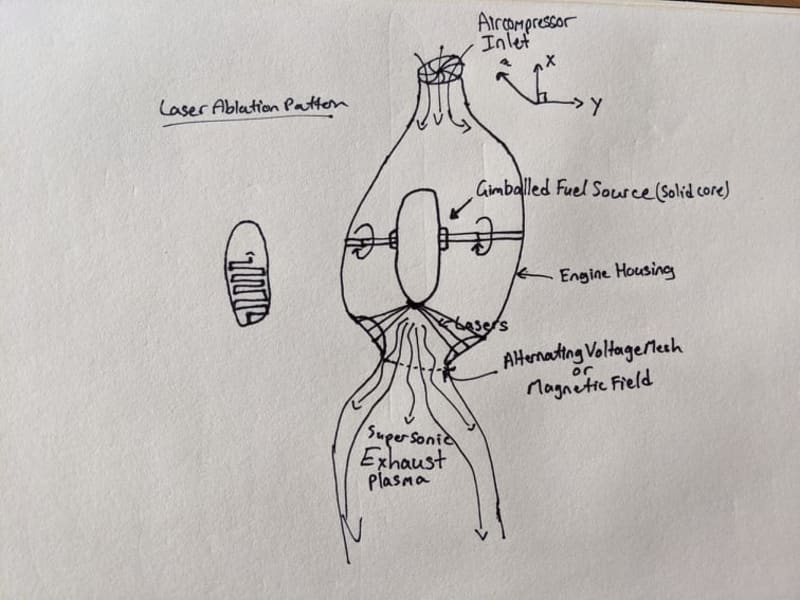 Aircompressor
Inlet
a
X
Y
Laser Ablation Pattern
Gimballed Fuel Source (Solid core)
Engine Housing
Lasers
Alternating Voltage Mesh
or
Magnetic Field
Supersonic
Exhaust
Plasma